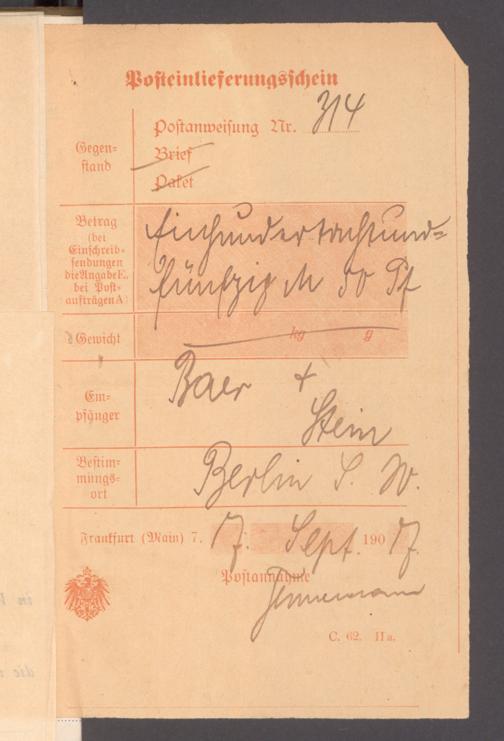 Posteinlieferungsschein
Gegen-
stand
Postanweisung Nr. 314
Brief
Paket
Betrag
(bei
Einschreib-
sendungen
die Angabe E,
bei Post-
aufträgen A)
Einhundertachtund-
fünfzig M 50 Pf
Gewicht
kg g
Em-
pfänger
Baer +
Stein
Bestim-
mungs-
ort
Berlin S. W.
Frankfurt (Main) 7. 17. Sept. 1907
Postannahme
C. 62. IIa.